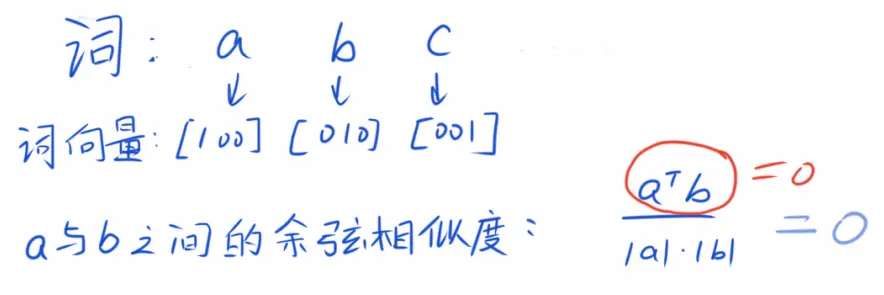 词: a b c
↓ ↓ ↓
词向量: [100] [010] [001]
a与b之间的余弦相似度: aᵀb / |a|·|b| = 0 = 0